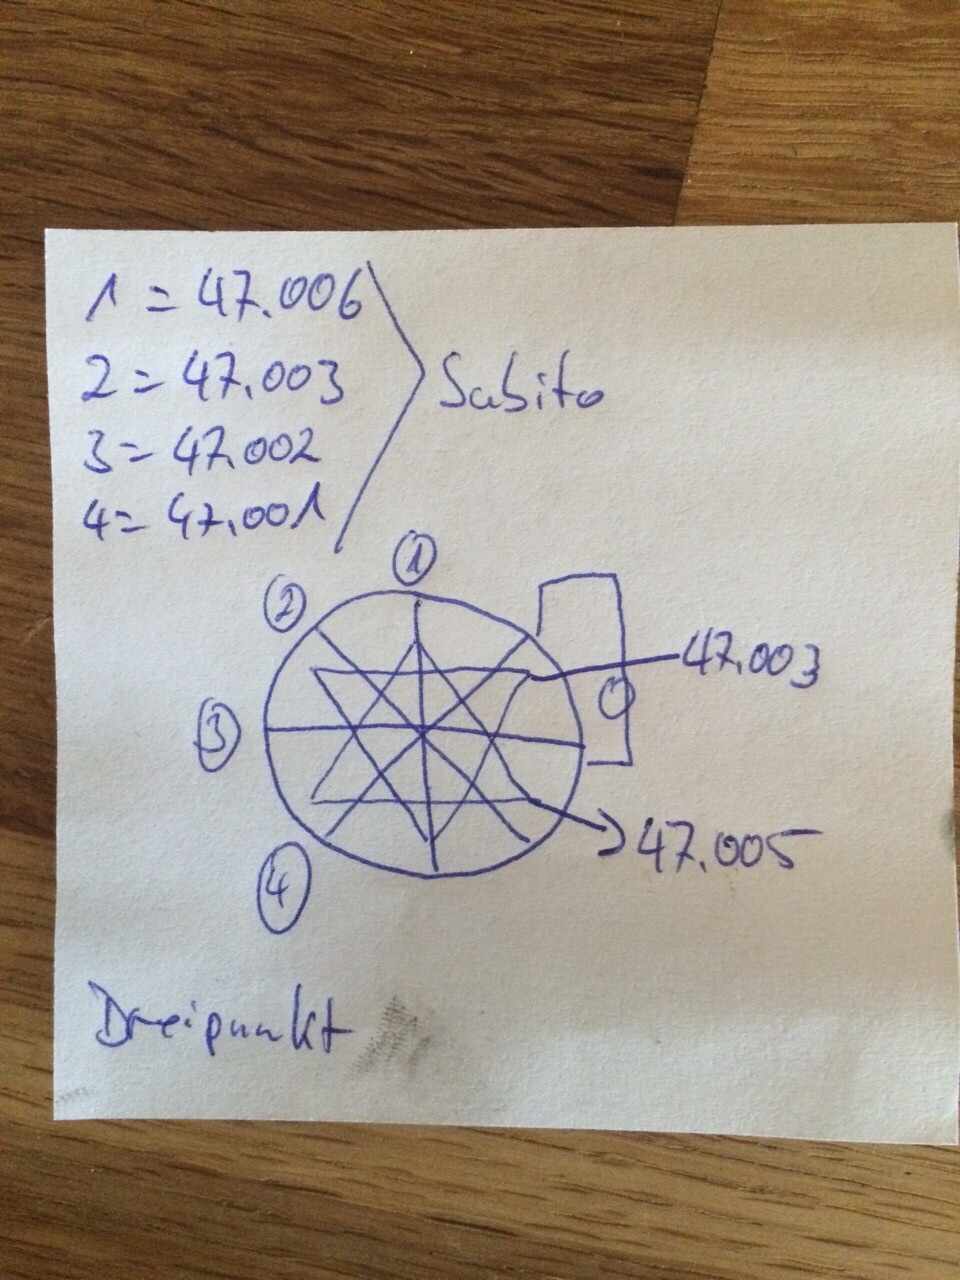 1 = 47.006
2 = 47.003
3 = 47.002
4 = 47.001
Subito
1
2
3
4
47.003
47.005
Dreipunkt